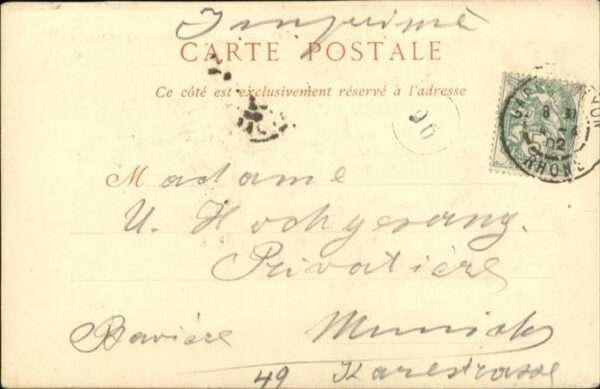 Imprimé
CARTE POSTALE
Ce côté est exclusivement réservé à l'adresse
96
GARE LYON
8
02
RHONE
Madame
U. Hochgesang.
Privatière
Bavière Munich
49 Karlstrasse